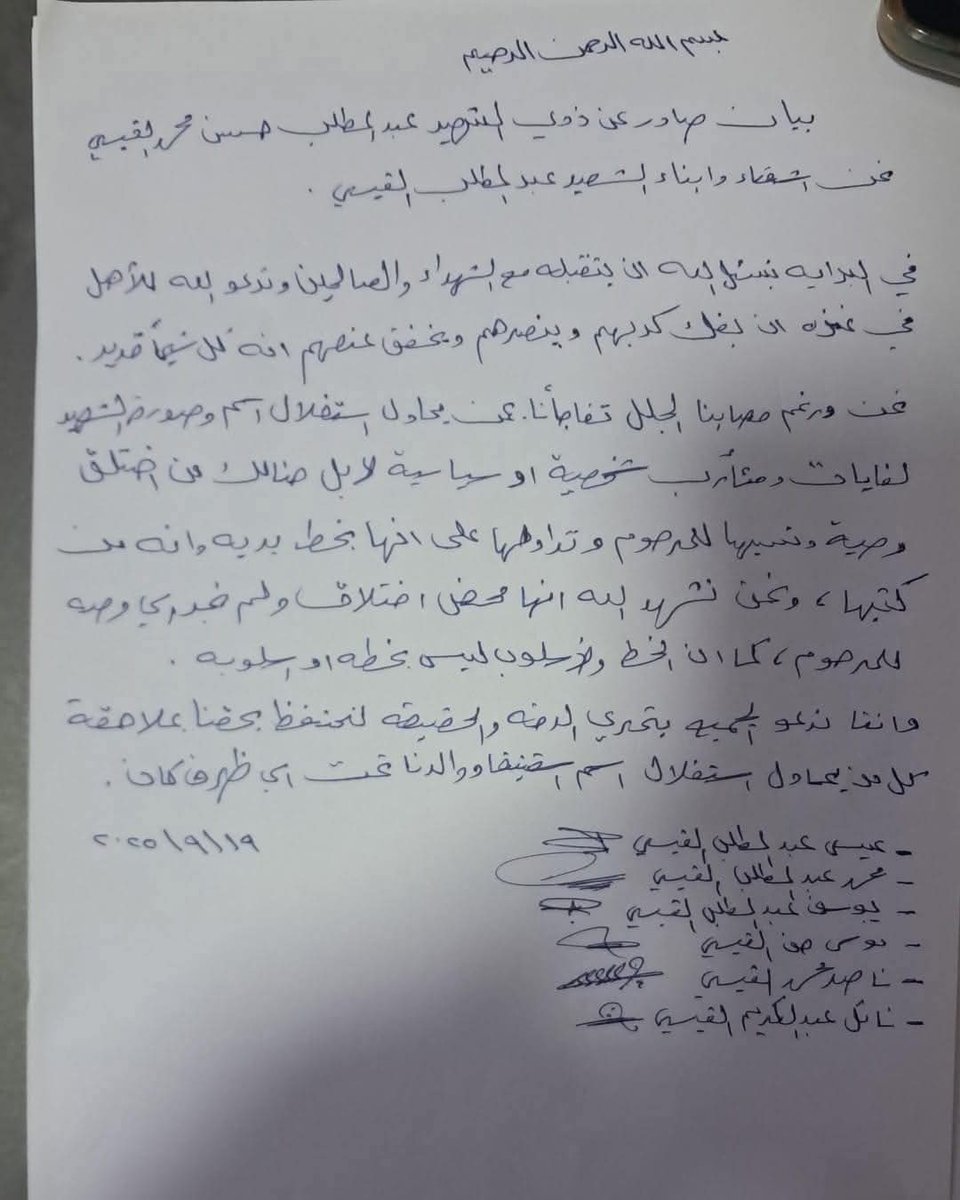 بسم الله الرحمن الرحيم
بيان صادر عن ذوي الشهيد عبد المطلب حسين محمد القيسي
نحن اشقاء وابناء الشهيد عبد المطلب القيسي .
في البدايه نسئل الله ان يتقبله مع الشهداء والصالحين وندعو الله للأهل
في غزه ان يفك كربهم وينصرهم ويخفف عنهم انه كل شيئاً قدير .
نحن ورغم مصابنا الجلل تفاجأنا بمن يحاول استغلال اسم وصورة الشهيد
لغايات ومئارب شخصية او سياسية لا بل هنالك من اختلق
وصية ونسبها للمرحوم وتداولها على انها بخط يديه وانه من
كتبها ، ونحن نشهد الله انها محض اختلاق ولم نجد اي وصيه
للمرحوم ، كما ان الخط والاسلوب ليس بخطه او اسلوبه .
واننا ندعو الجميع بتحري الدقه والحقيقه لنحتفظ بحقنا بملاحقة
كل من يحاول استغلال اسم شقيقنا ووالدنا تحت اي ظرف كان .
٢٠٢٥/٩/١٩
- عيسى عبد المطلب القيسي
- محمد عبد المطلب القيسي
- يوسف عبد المطلب القيسي
- موسى القيسي
- ناصر محمد القيسي
- نائل عبد الكريم القيسي